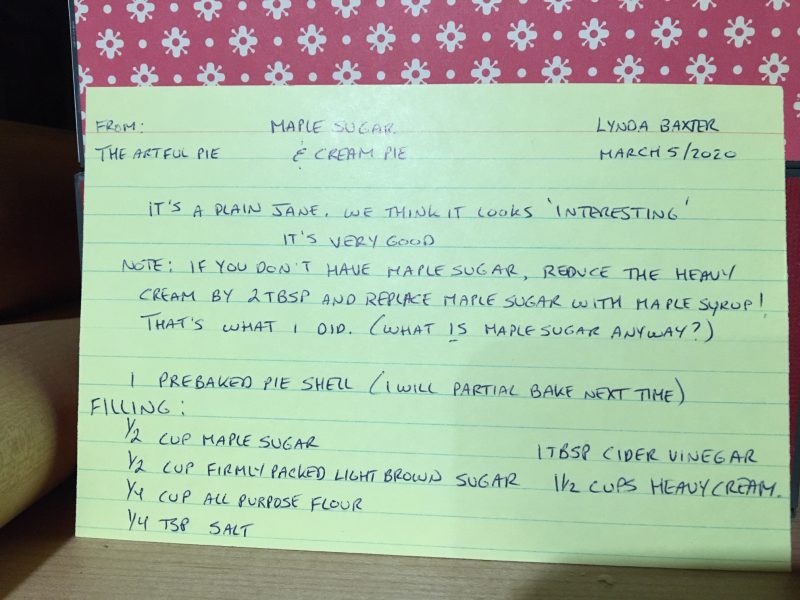 FROM: MAPLE SUGAR LYNDA BAXTER
THE ARTFUL PIE & CREAM PIE MARCH 5/2020
IT'S A PLAIN JANE. WE THINK IT LOOKS 'INTERESTING'
IT'S VERY GOOD
NOTE: IF YOU DON'T HAVE MAPLE SUGAR, REDUCE THE HEAVY
CREAM BY 2TBSP AND REPLACE MAPLE SUGAR WITH MAPLE SYRUP!
THAT'S WHAT I DID. (WHAT IS MAPLE SUGAR ANYWAY?)
1 PREBAKED PIE SHELL (I WILL PARTIAL BAKE NEXT TIME)
FILLING:
1/2 CUP MAPLE SUGAR
1 TBSP CIDER VINEGAR
1/2 CUP FIRMLY PACKED LIGHT BROWN SUGAR
1 1/2 CUPS HEAVY CREAM.
1/4 CUP ALL PURPOSE FLOUR
1/4 TSP SALT